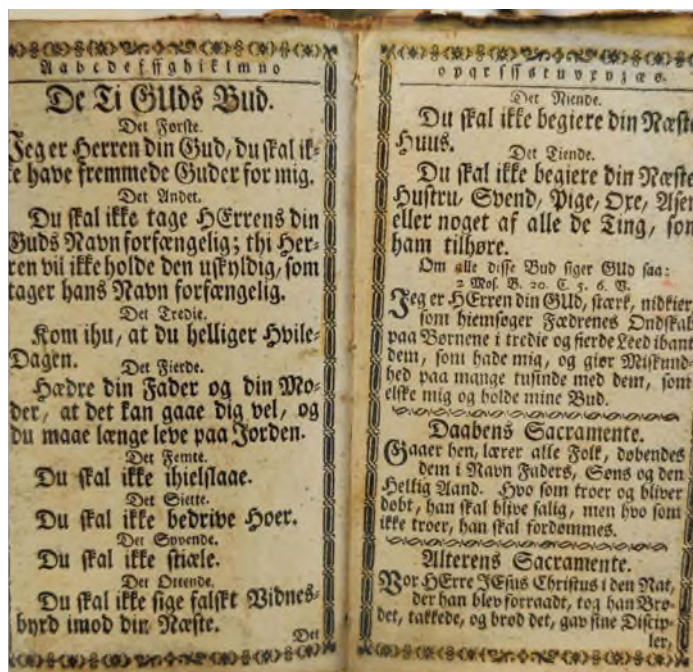 Aabcdefſſghiklmno
De Ti GUds Bud.
Det Første.
Jeg er Herren din Gud, du ſkal ik-
ke have fremmede Guder for mig.
Det Andet.
Du ſkal ikke tage HErrens din
Guds Navn forfængelig; thi Her-
ren vil ikke holde den uſkyldig, ſom
tager hans Navn forfængelig.
Det Tredie.
Kom ihu, at du helliger Hvile-
Dagen.
Det Fierde.
Hædre din Fader og din Mo-
der, at det kan gaae dig vel, og
du maae længe leve paa Jorden.
Det Femte.
Du ſkal ikke ihielſlaae.
Det Siette.
Du ſkal ikke bedrive Hoer.
Det Syvende.
Du ſkal ikke ſtiæle.
Det Ottende.
Du ſkal ikke ſige falſkt Vidnes-
byrd imod din Næſte.
Det
opqrſſſstuvxyzæø.
Det Niende.
Du ſkal ikke begiere din Næſte
Huus.
Det Tiende.
Du ſkal ikke begiere din Næſte
Huſtru, Svend, Pige, Oxe, Aſen
eller noget af alle de Ting, ſom
ham tilhøre.
Om alle diſſe Bud ſiger GUd ſaa:
2 Moſ. B. 20. C. 5. 6. V.
Jeg er HErren din GUd, ſtærk, nidkier,
ſom hiemſøger Fædrenes Ondſkab
paa Børnene i tredie og fierde Leed ibant
dem, ſom hade mig, og giør Miſkund-
hed paa mange tuſinde med dem, ſom
elſke mig og holde mine Bud.
Daabens Sacramente.
Gaaer hen, lærer alle Folk, døbendes
dem i Navn Faders, Søns og den
Hellig Aand. Hvo ſom troer og bliver
døbt, han ſkal blive ſalig, men hvo ſom
ikke troer, han ſkal fordømmes.
Alterens Sacramente.
Vor HErre JEſus Chriſtus i den Nat,
der han blev forraadt, tog han Brø-
det, takkede, og brød det, gav ſine Diſcip-
ler,